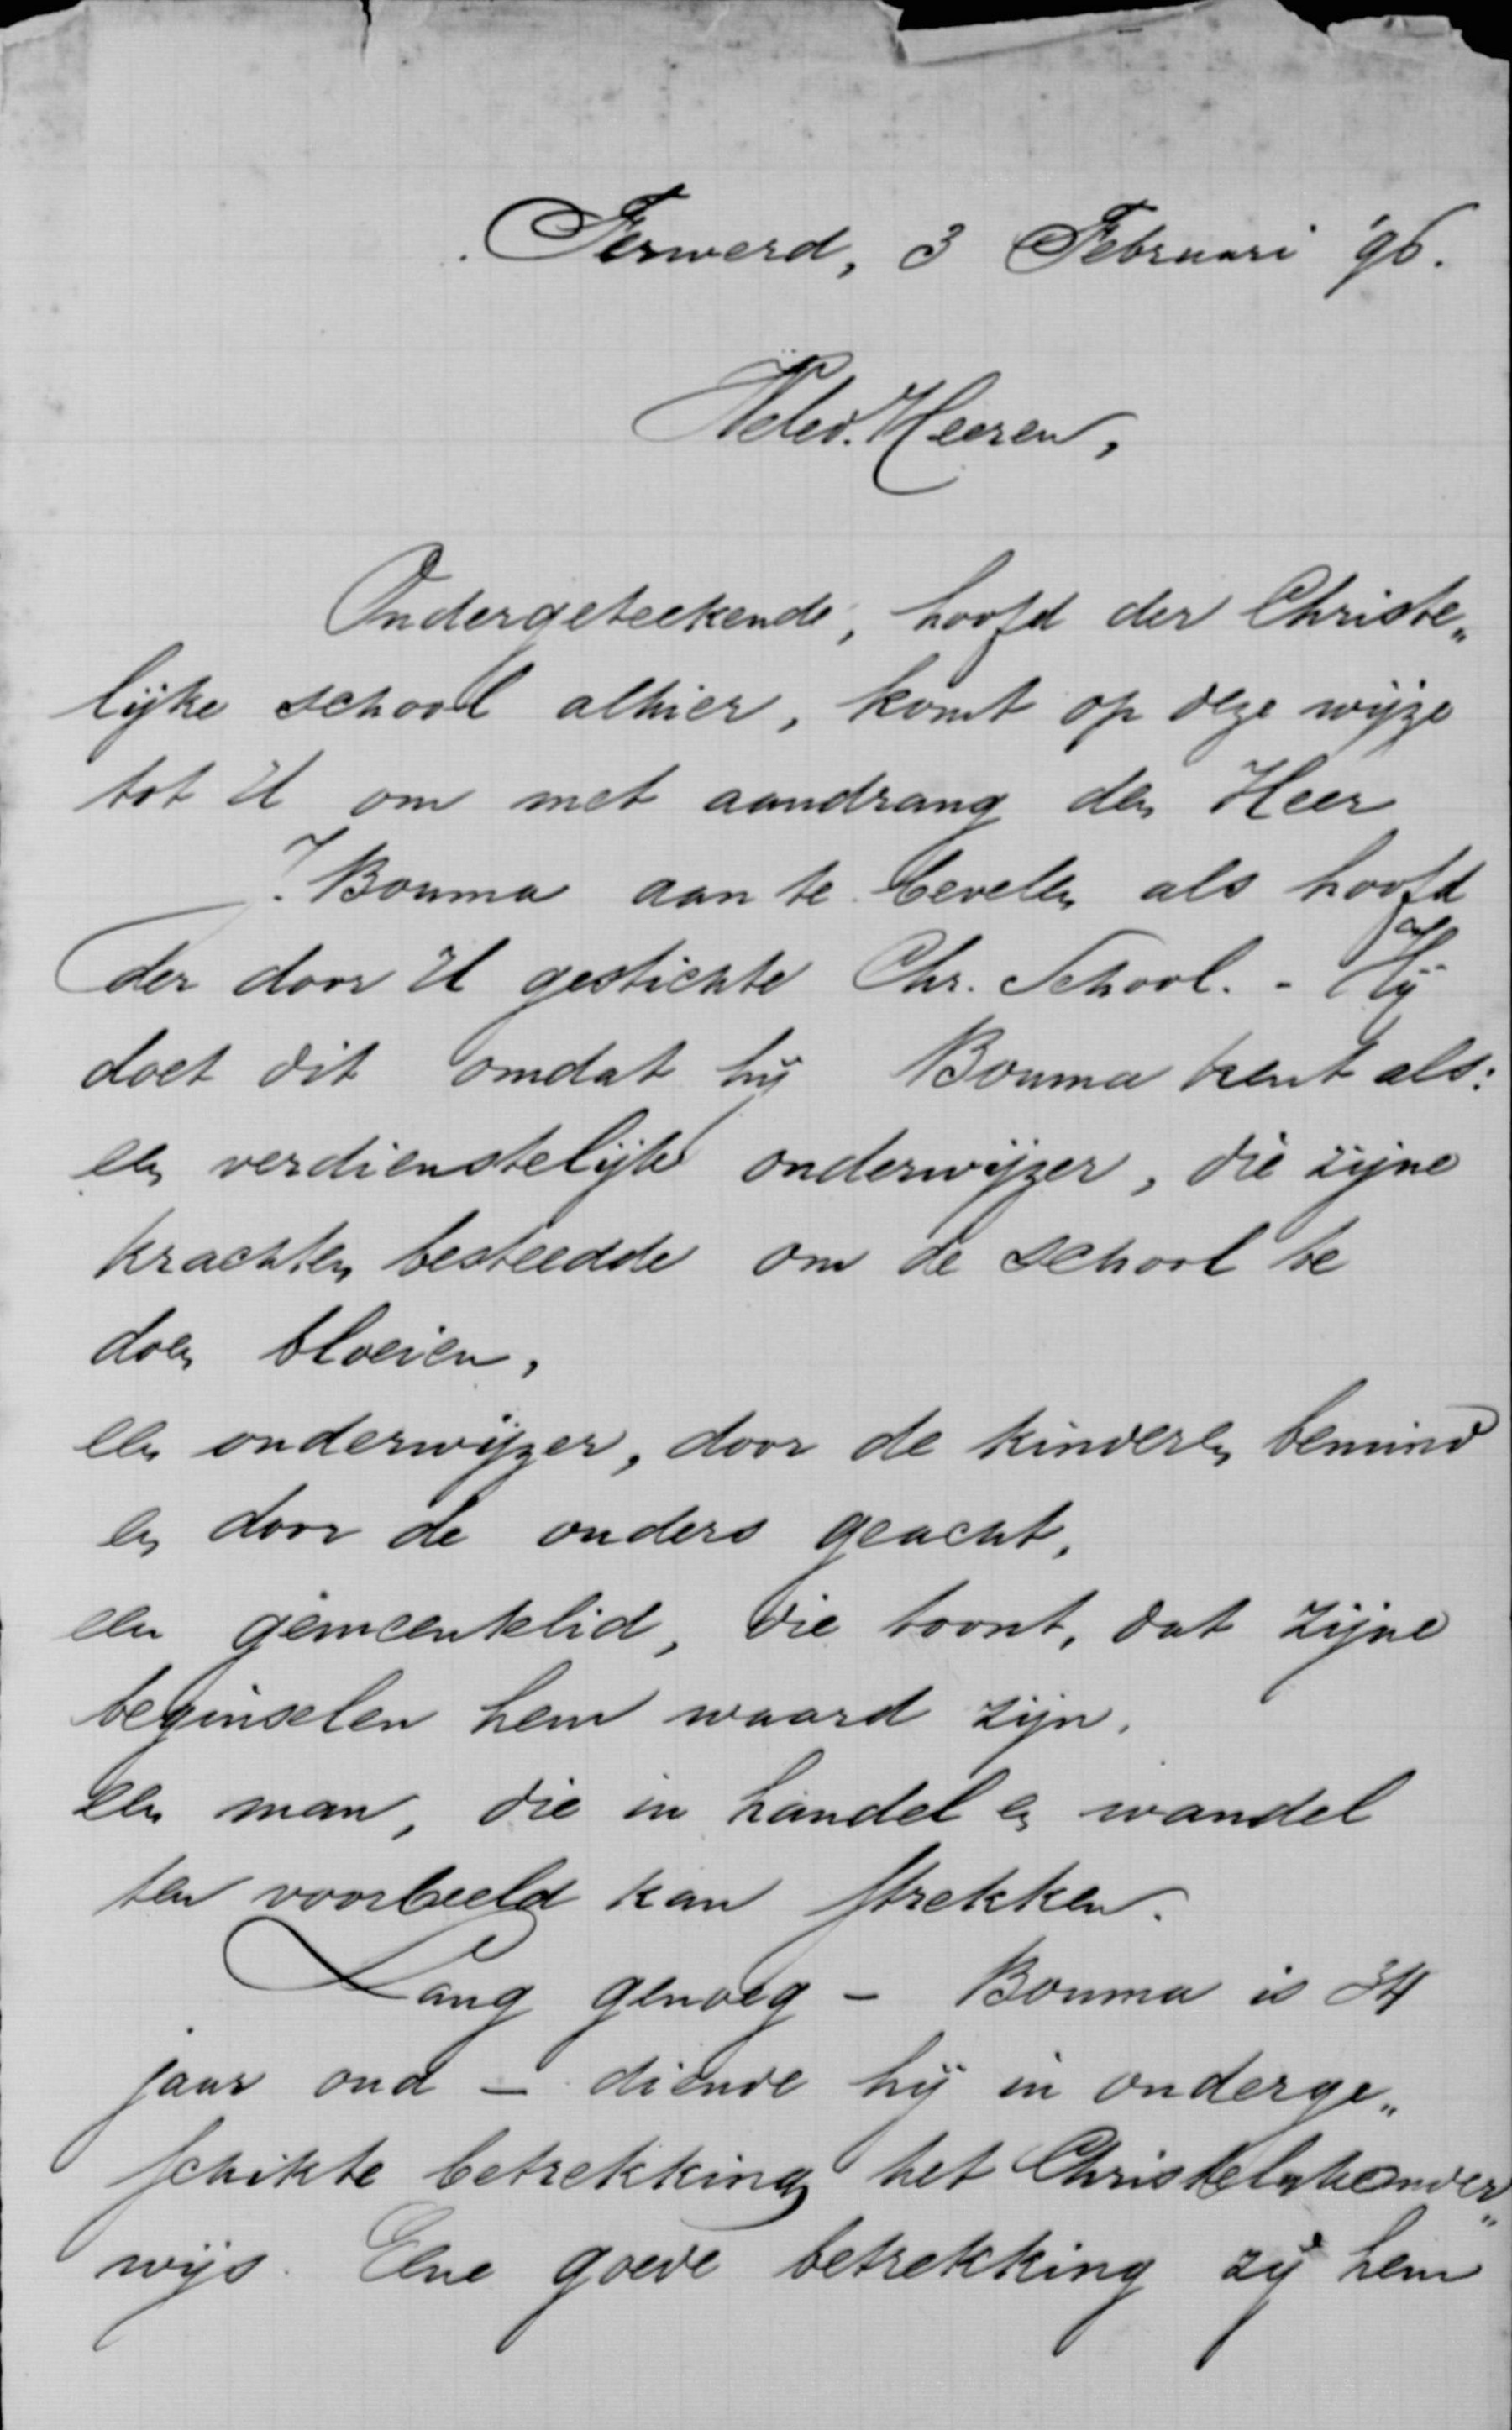 Ferwerd, 3 Februari '96.
WelEd. Heeren,
Ondergeteekende, hoofd der Christe„
lijke school alhier, komt op deze wijze
tot U om met aandrang den Heer
I. Bouma aan te bevelen als hoofd
der door U gestichte Chr. School. - Hij
doet dit omdat hij Bouma kent als:
een verdienstelijk onderwijzer, die zijne
krachten besteedde om de school te
doen bloeien,
een onderwijzer, door de kinderen bemind
en door de ouders geacht,
een gemeentelid, die toont, dat zijne
beginselen hem waard zijn.
een man, die in handel en wandel
ten voorbeeld kan strekken.
Lang genoeg – Bouma is 34
jaar oud – diende hij in onderge„
schikte betrekking het Christelijke onder„
wijs. Eene goede betrekking zij hem